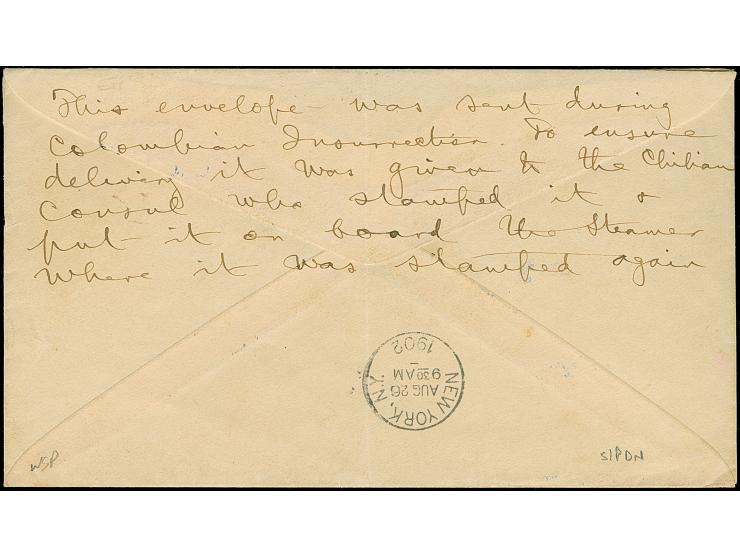 This envelope was sent during
Colombian Insurrection. To ensure
delivery it was given to the Chilian
Consul who stamped it &
put it on board the Steamer
where it was stamped again
NEW YORK, N.Y.
AUG 26
9 30 AM
1902
WSP
S/PDN